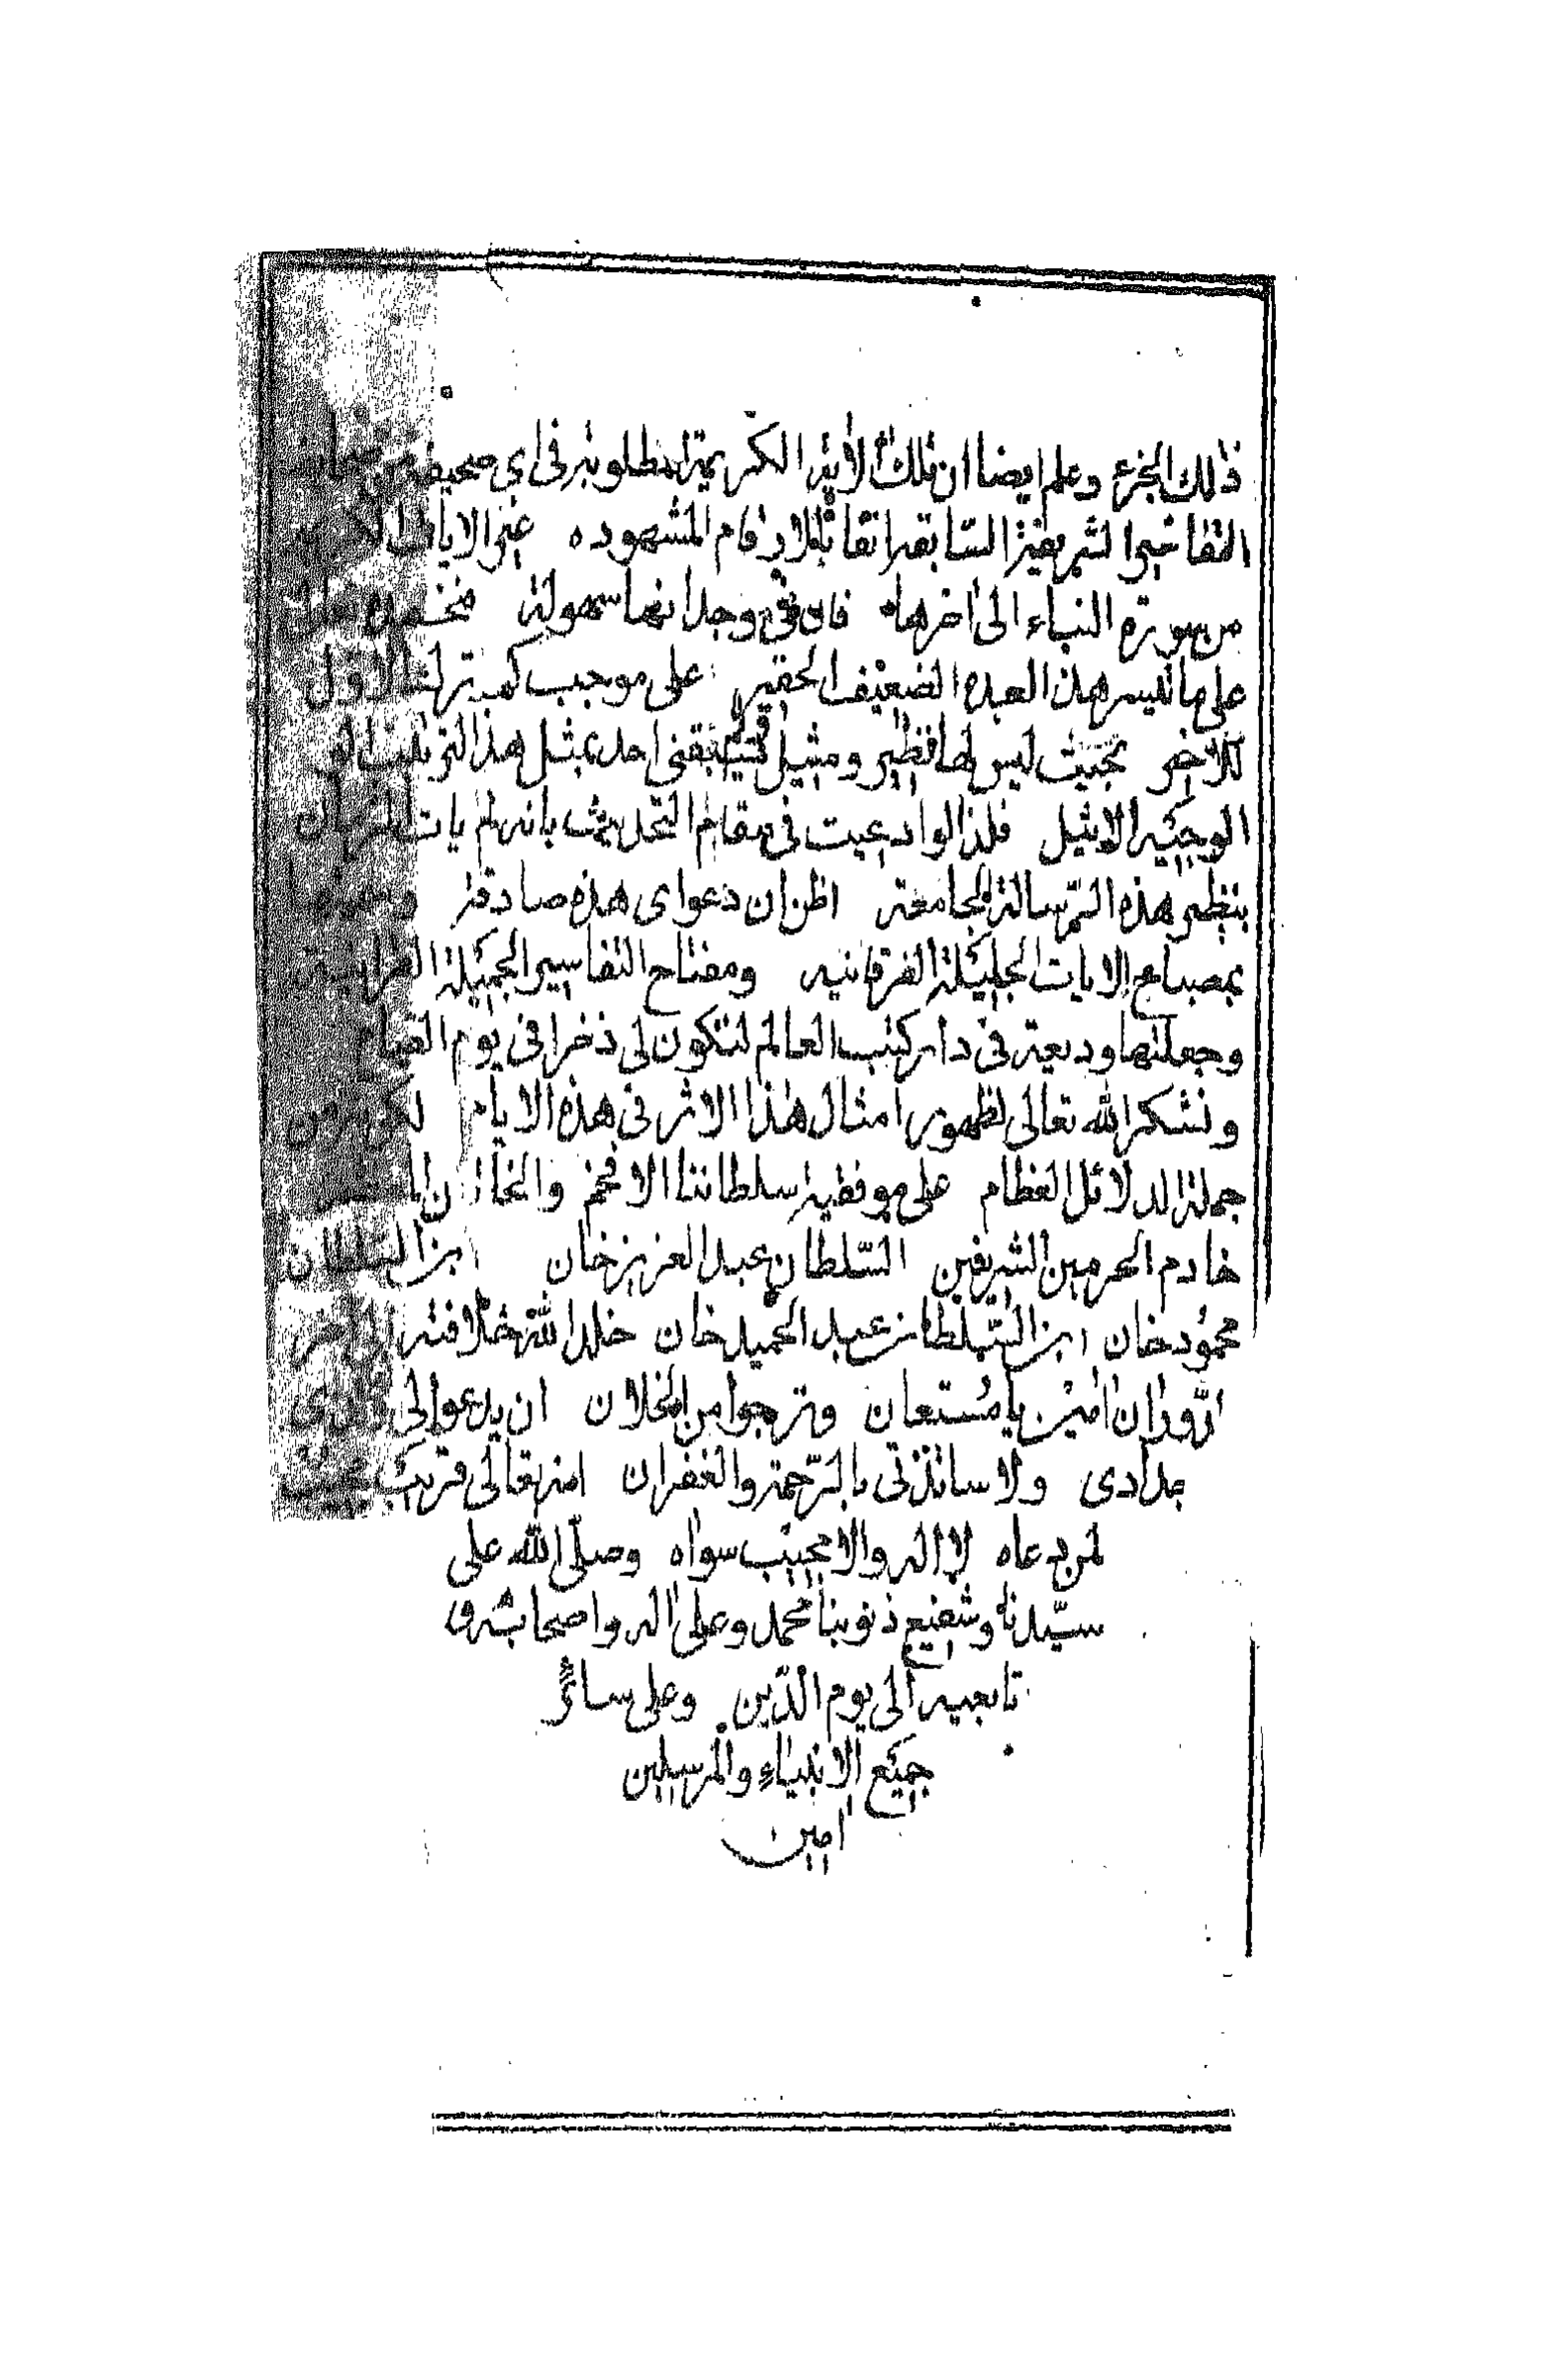 ذلك الجزء وعلم ايضا ان تلك الاية الكريمة المطلوبة فى اي صحيفة من
التفاسير الشريفة السابقة اتفا بالارقام المشهوده غير الايات
من سورة النباء الى اخرها فان فى وجدانها سهولة
على ما تيسر لهذا العبد الضعيف الحقير على موجب كم ترك الاول
للاخر بحيث ليس لها نظير ومثيل احد بمثل هذا الترتيب
الوجيه الاثيل فلذا لو ادعيت فى مقام التحديث بانه لم يات الزمان
بنظير هذه الرسالة الجامعة اظن ان دعواى هذه صادقة
بمصباح الايات الجليلة الفرقانيه ومفتاح التفاسير الجميلة
وجعلتها وديعة فى دار كتب العالم لتكون لى ذخرا فى يوم القيام
ونشكر الله تعالى لظهور امثال هذا الاثر فى هذه الايام
جملة الدلائل العظام على موفقية سلطاننا الافخم والخاقان
خادم الحرمين الشريفين السّلطان عبد العزيز خان ابن السلطان
محمود خان ابن السّلطان عبد الحميد خان خلد الله خلافته الى اخر
الدّوران امين يا مستعان ونرجوا من الخلان ان يدعوا لى
جدادى ولاساتذتى بالرّحمة والغفران انه تعالى قريب مجيب
لمن دعاه لا اله والا مجيب سواه وصلّى الله على
سيّدنا وشفيع ذنوبنا محمد وعلى اله واصحابه و
تابعيه الى يوم الدّين وعلى سائر
جميع الانبياء والمرسلين
امين